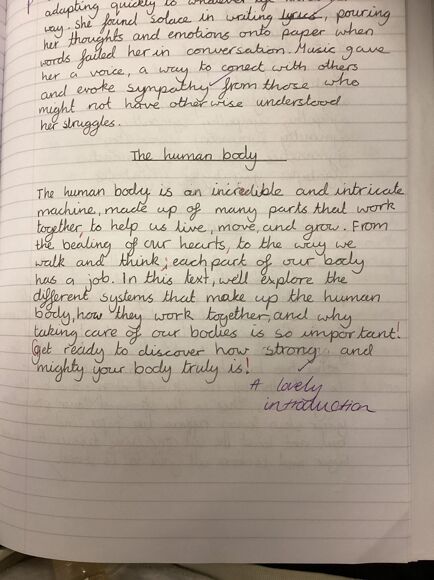 adapting quickly to whatever life
way. She found solace in writing lyrics, pouring
her thoughts and emotions onto paper when
words failed her in conversation. Music gave
her a voice, a way to conect with others
and evoke sympathy from those who
might not have otherwise understood
her struggles.
The human body
The human body is an incredible and intricate
machine, made up of many parts that work
together, to help us live, move, and grow. From
the beating of our hearts, to the way we
walk and think; each part of our body
has a job. In this text, we'll explore the
different systems that make up the human
body, how they work together, and why
taking care of our bodies is so important!
Get ready to discover how strong and
mighty your body truly is!
A lovely
introduction